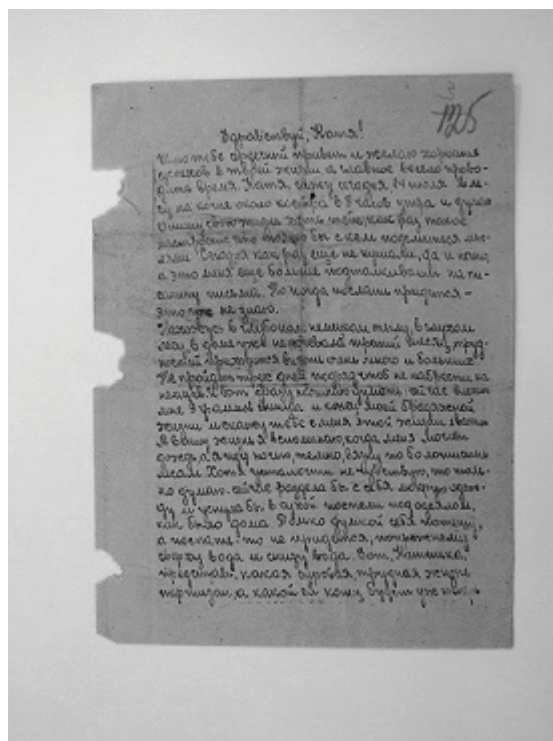 125
Здравствуй, Катя!
Шлю тебе сердечный привет и желаю хороших
успехов в твоей жизни а главное весело прово-
дить время. Катя, сижу сегодня 24 июля в ле-
су на кочке около костра в 8 часов утра и думаю
свою жизнь хоть тебе, как раз такое
настроение что только бы с кем поделиться мыс-
лями. Сегодня как раз еще не кушали, да и нечего,
а это меня еще больше подталкивает на пи-
санину письма. Но когда послать придется -
этого не знаю.
Нахожусь в глубоком немецком тылу, в глухом
лесу, в доме уже не ночевала третий месяц, труд-
ностей приходится видеть очень много и больших.
Не пройдет трех дней подряд чтоб не набрести на
немцев. И вот сразу начинаю думать: сейчас
мне 9 грамм свинца и конец моей бродяжной
жизни и скажу тебе с меня этой жизни
Я в эту жизнь вспоминаю, когда меня мочит
дождь, а я иду ночью, темно, вязну по болотистым
лесам. Хотя усталости не чувствую, то толь-
ко думаю - сейчас раздела бы с себя мокрую одеж-
ду и уснула бы в сухой постели под одеялом,
как было дома. Только думкой себя потешу,
а поспать-то не придется, по прежнему
сверху вода и снизу вода. Вот, Катюшка,
представь, какая суровая, трудная жизнь
партизан, а какой ей конец будет уж